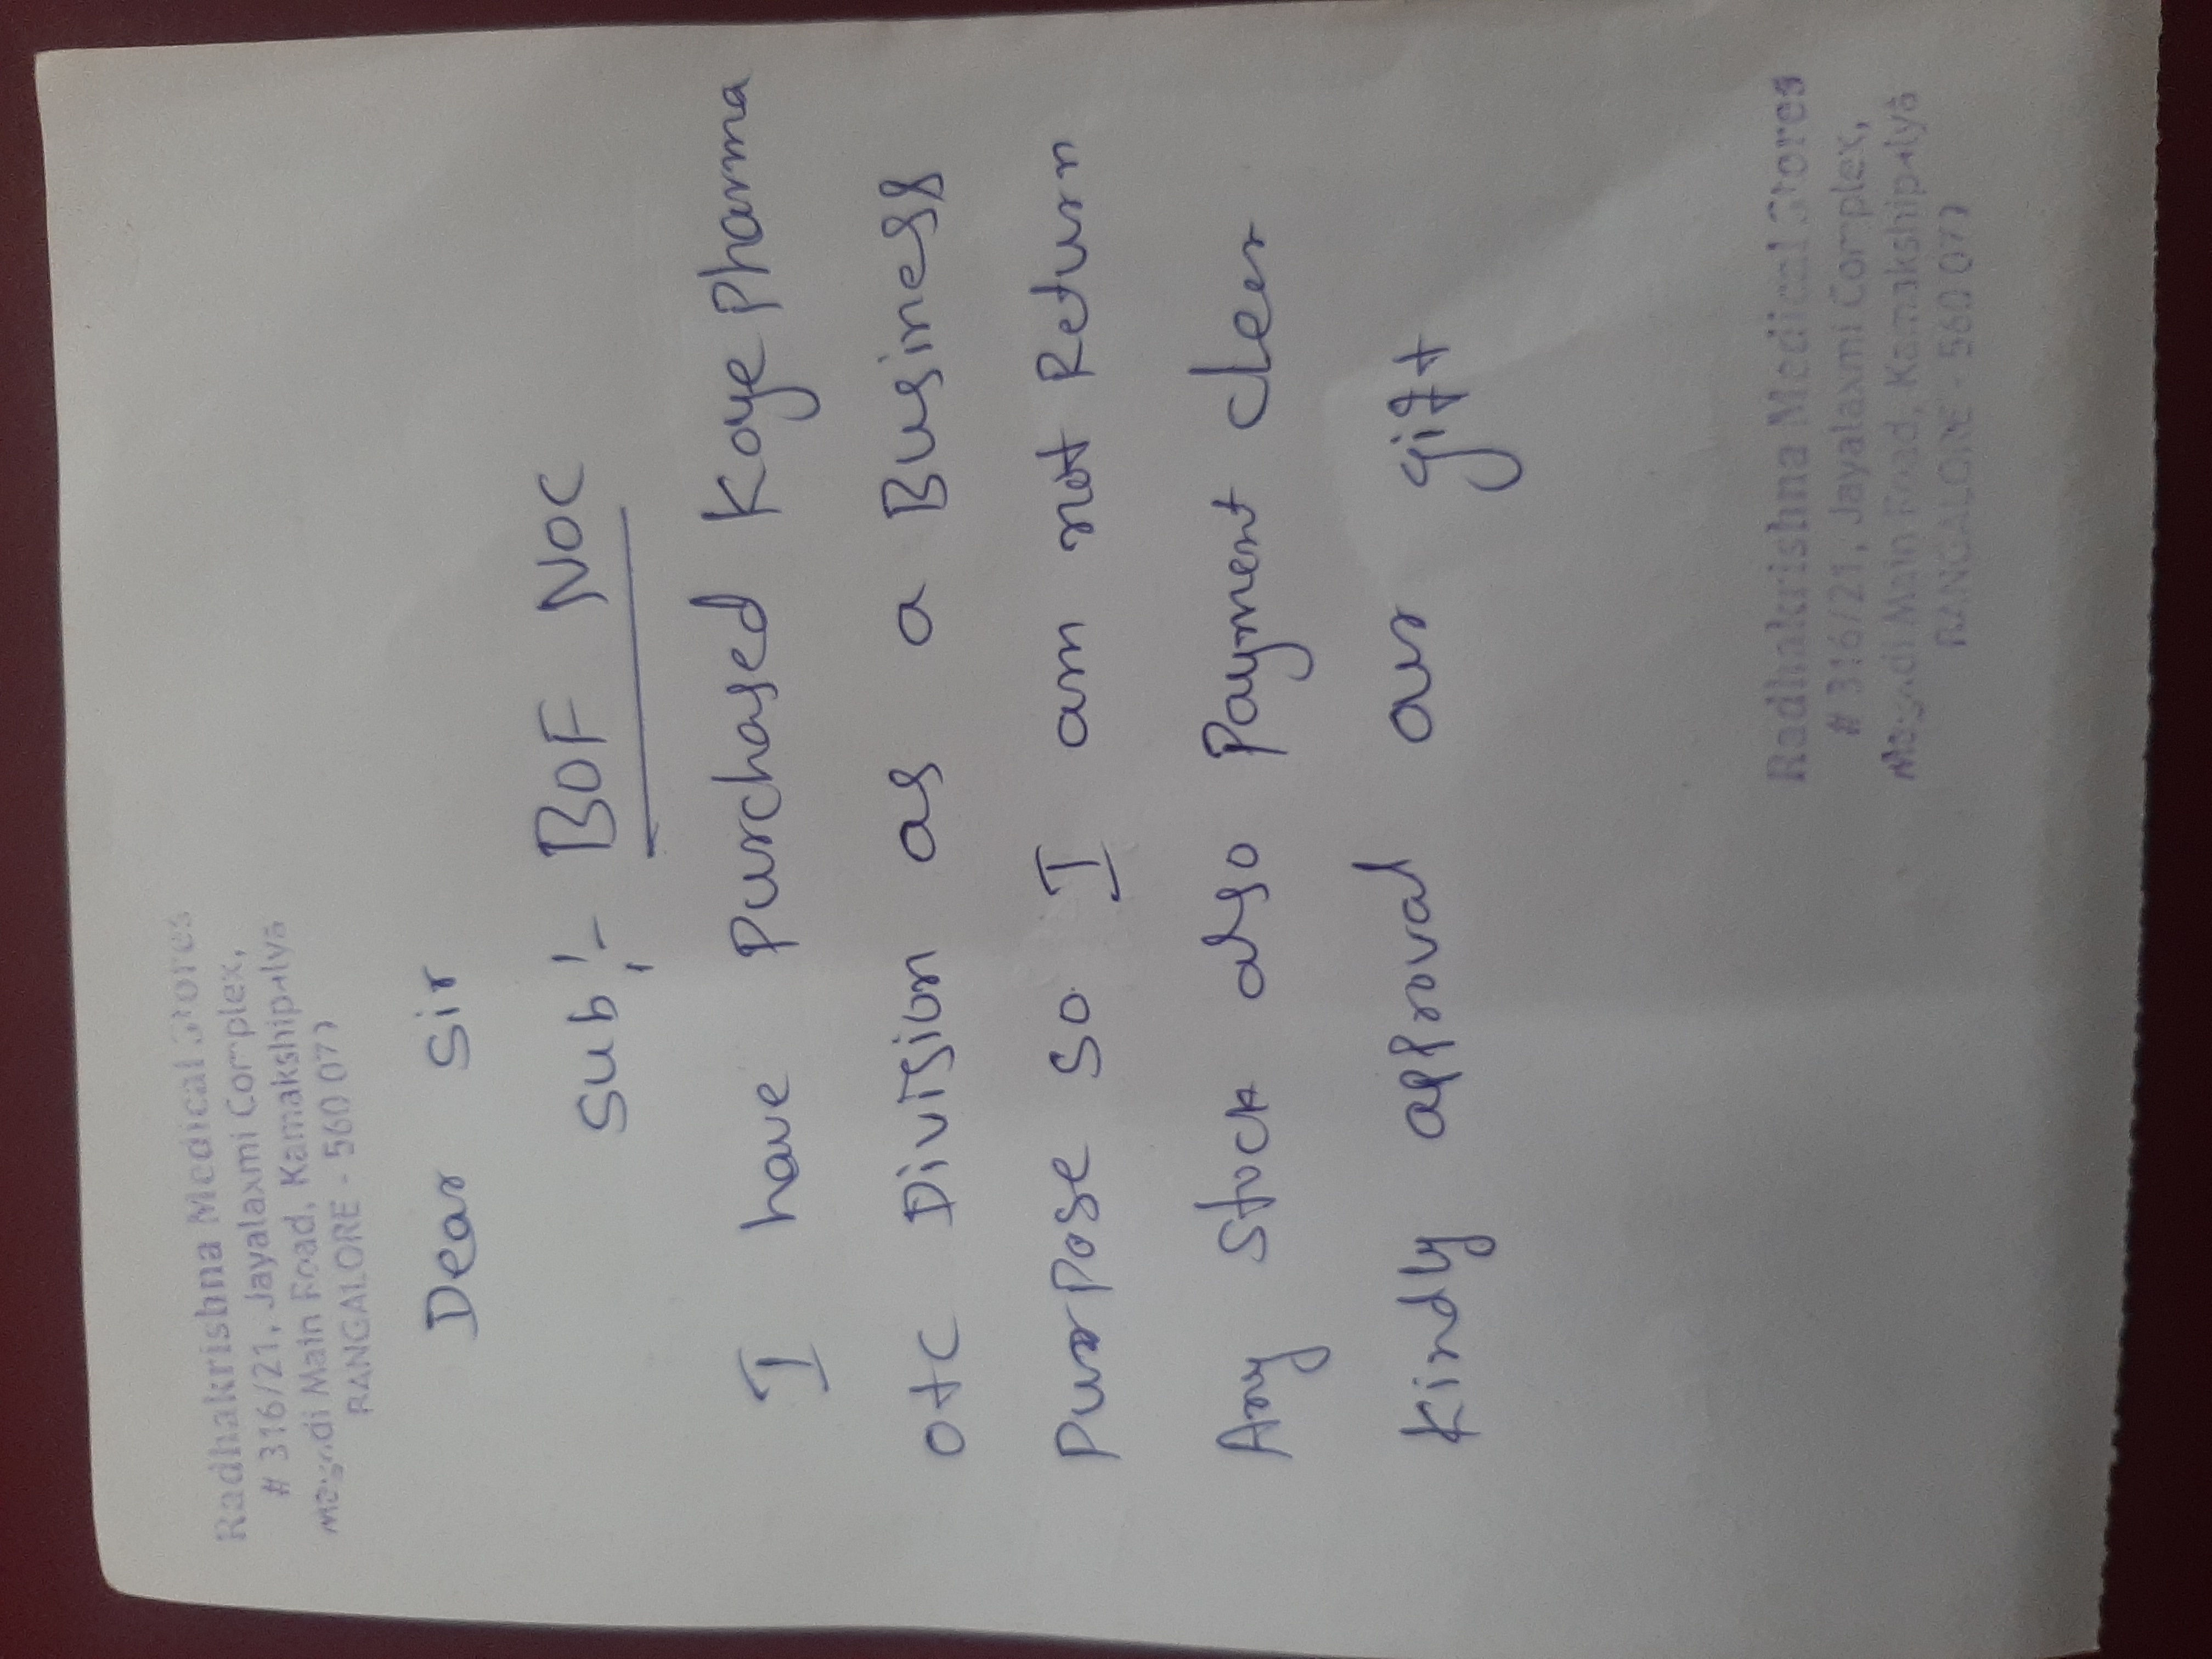 Radhakrishna Medical Stores
# 316/21, Jayalaxmi Complex,
Main Road, Kamakshipalya
BANGALORE - 560 077
Dear Sir
Sub:- BOF NOC
I have Purchased Koye Pharma
otc Division as a Business
PurPose so I am not Return
Any Stock also Payment cleer
Kindly approval our gift
Radhakrishna Medical Stores
# 316/21, Jayalaxmi Complex,
Main Road, Kamakshipalya
BANGALORE - 560 077